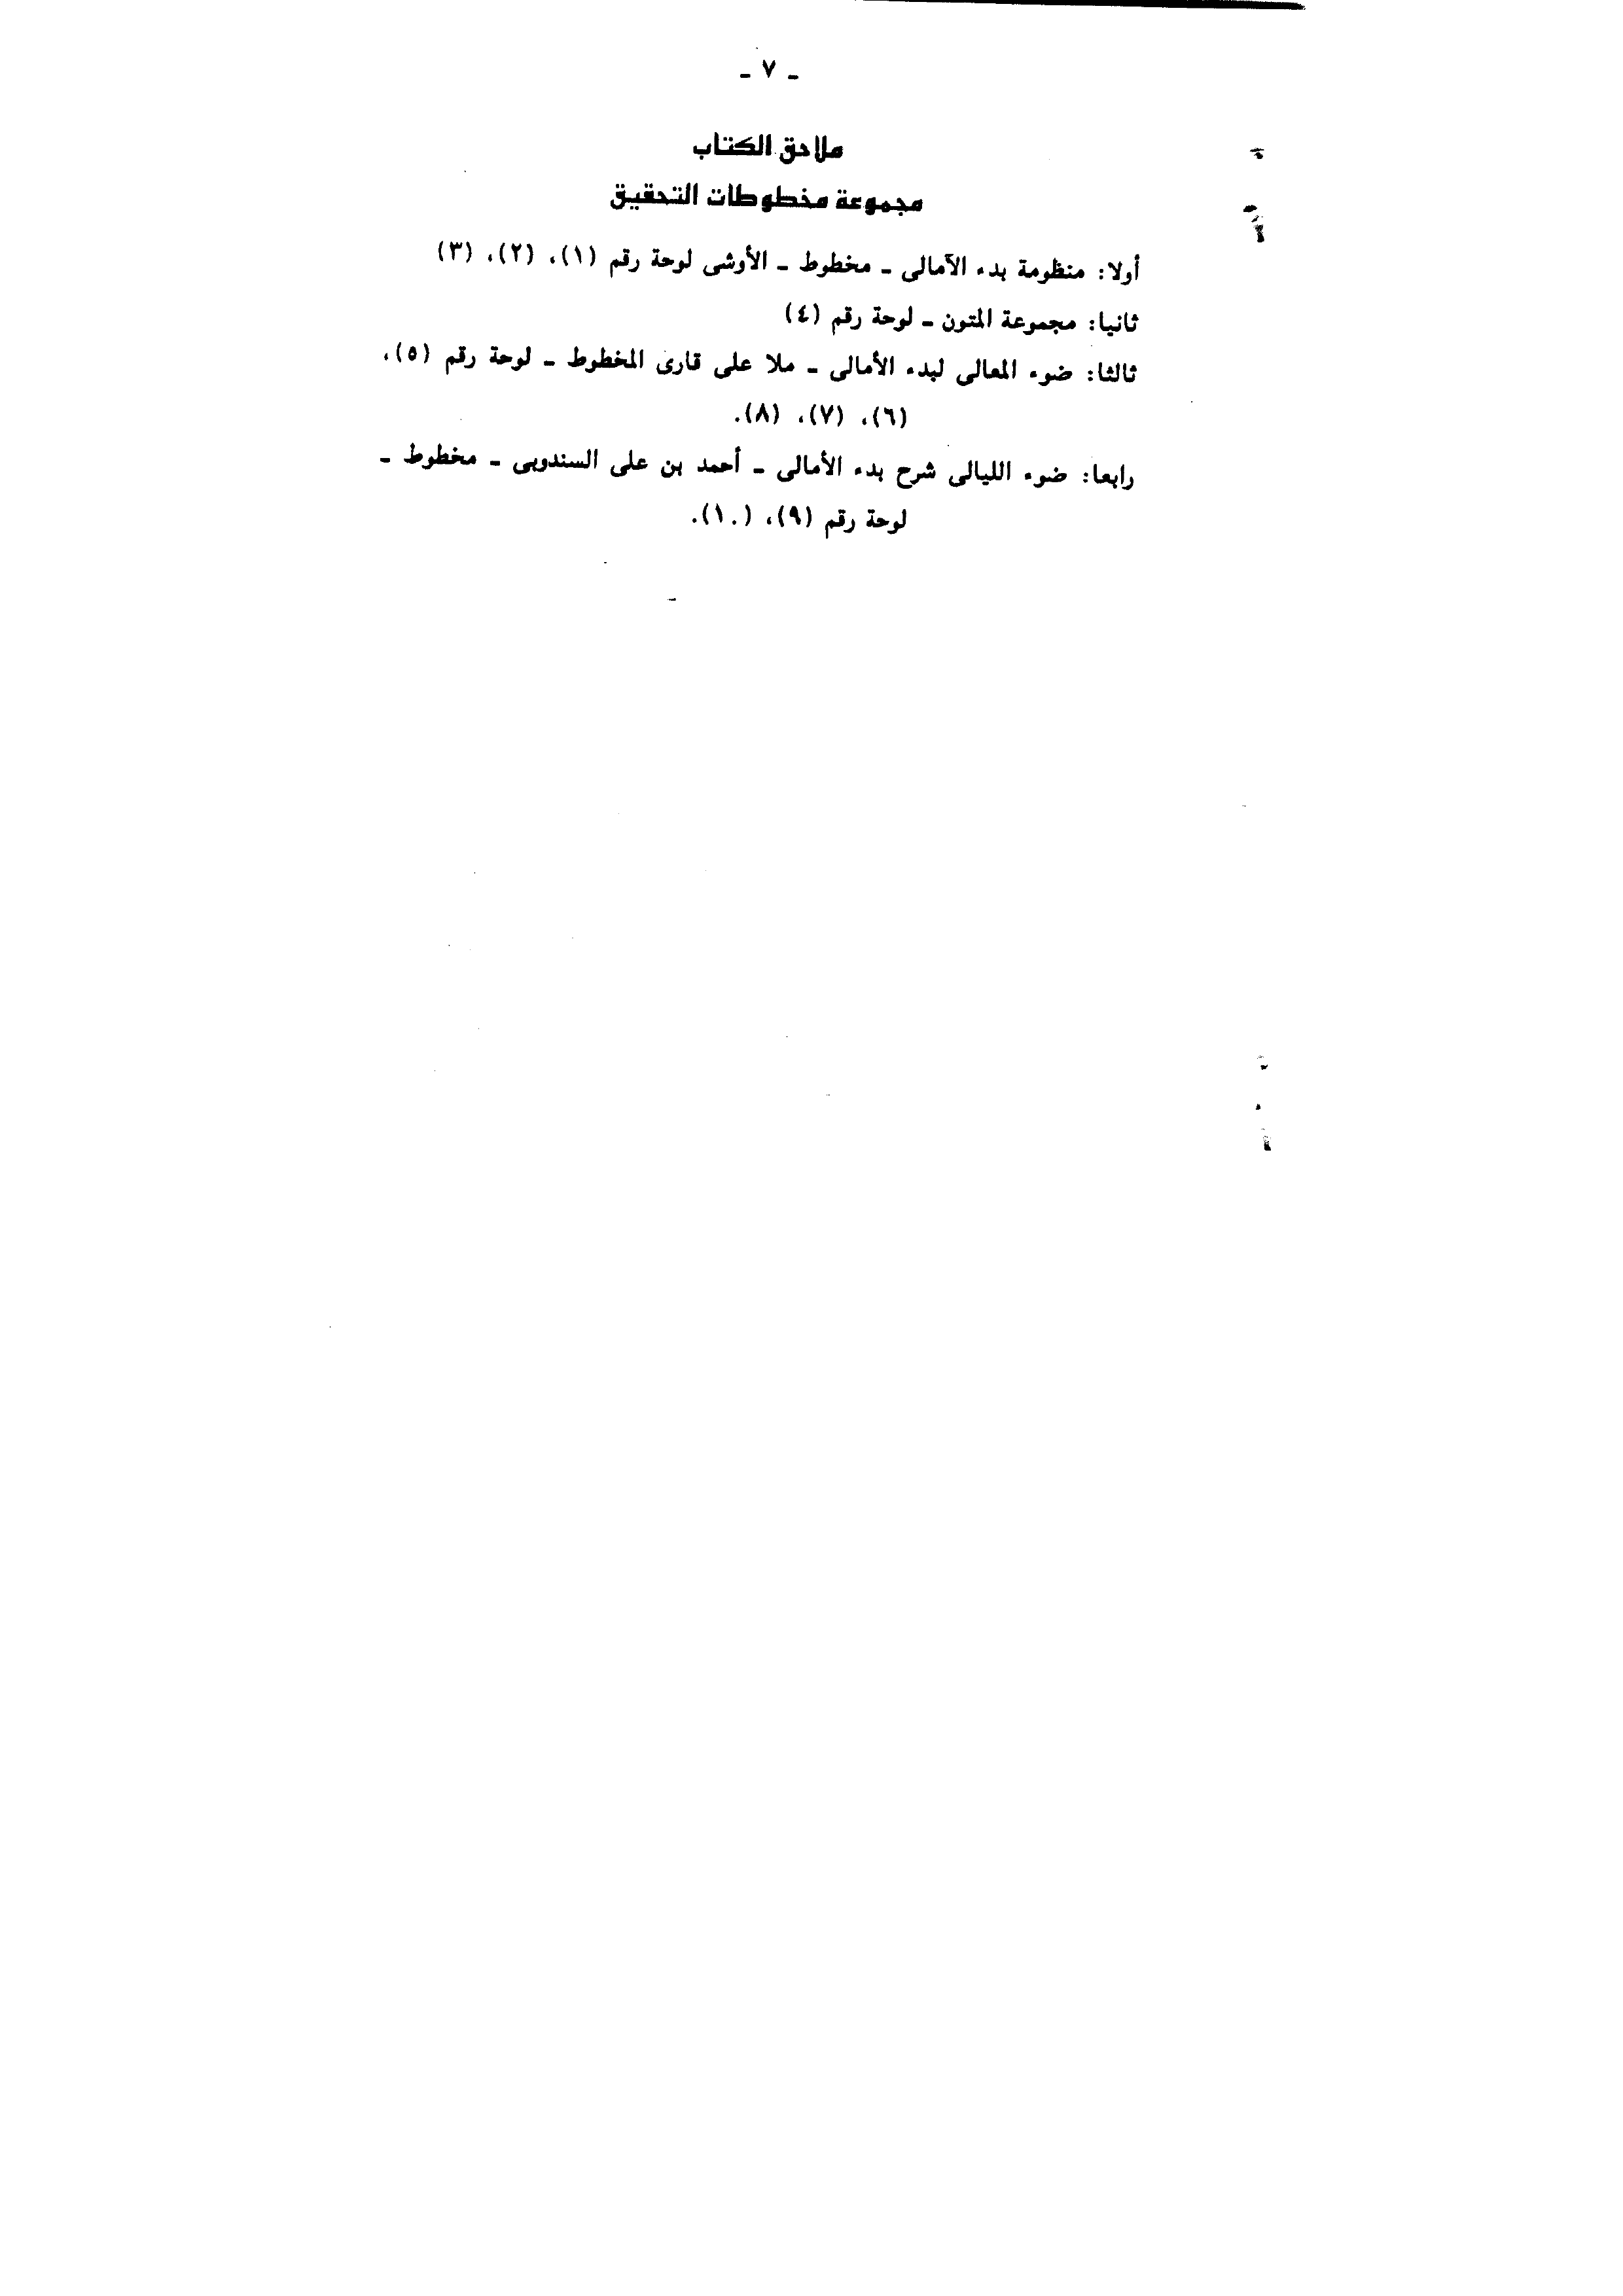 ـ ٧ ـ
ملاحق الكتاب
مجموعة مخطوطات التحقيق
أولا: منظومة بدء الآمالى ـ مخطوط ـ الأوشى لوحة رقم (١)، (٢)، (٣)
ثانيا: مجموعة المتون ـ لوحة رقم (٤)
ثالثا: ضوء المعالى لبدء الأمالى ـ ملا على قارى المخطوط ـ لوحة رقم (٥)،
(٦)، (٧)، (٨).
رابعا: ضوء الليالى شرح بدء الأمالى ـ أحمد بن على السندوبى ـ مخطوط ـ
لوحة رقم (٩)، (١٠).